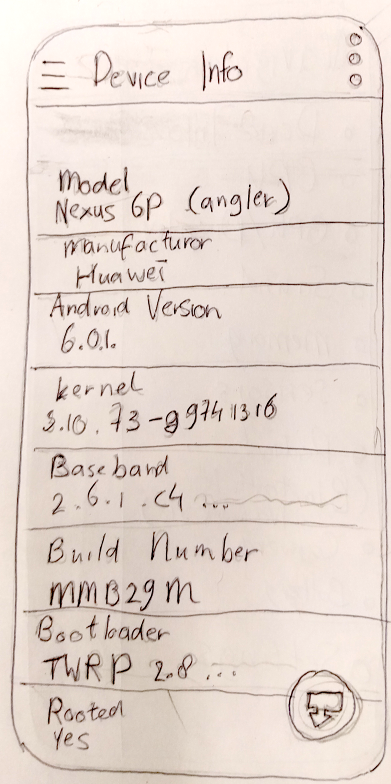 Device Info
Model
Nexus 6P (angler)
manufacturor
Huawei
Android Version
6.0.1.
kernel
3.10.73-g9741316
Baseband
2.6.1.c4 ...
Build Number
MMB29M
Bootloader
TWRP 2.8 ...
Rooted
Yes